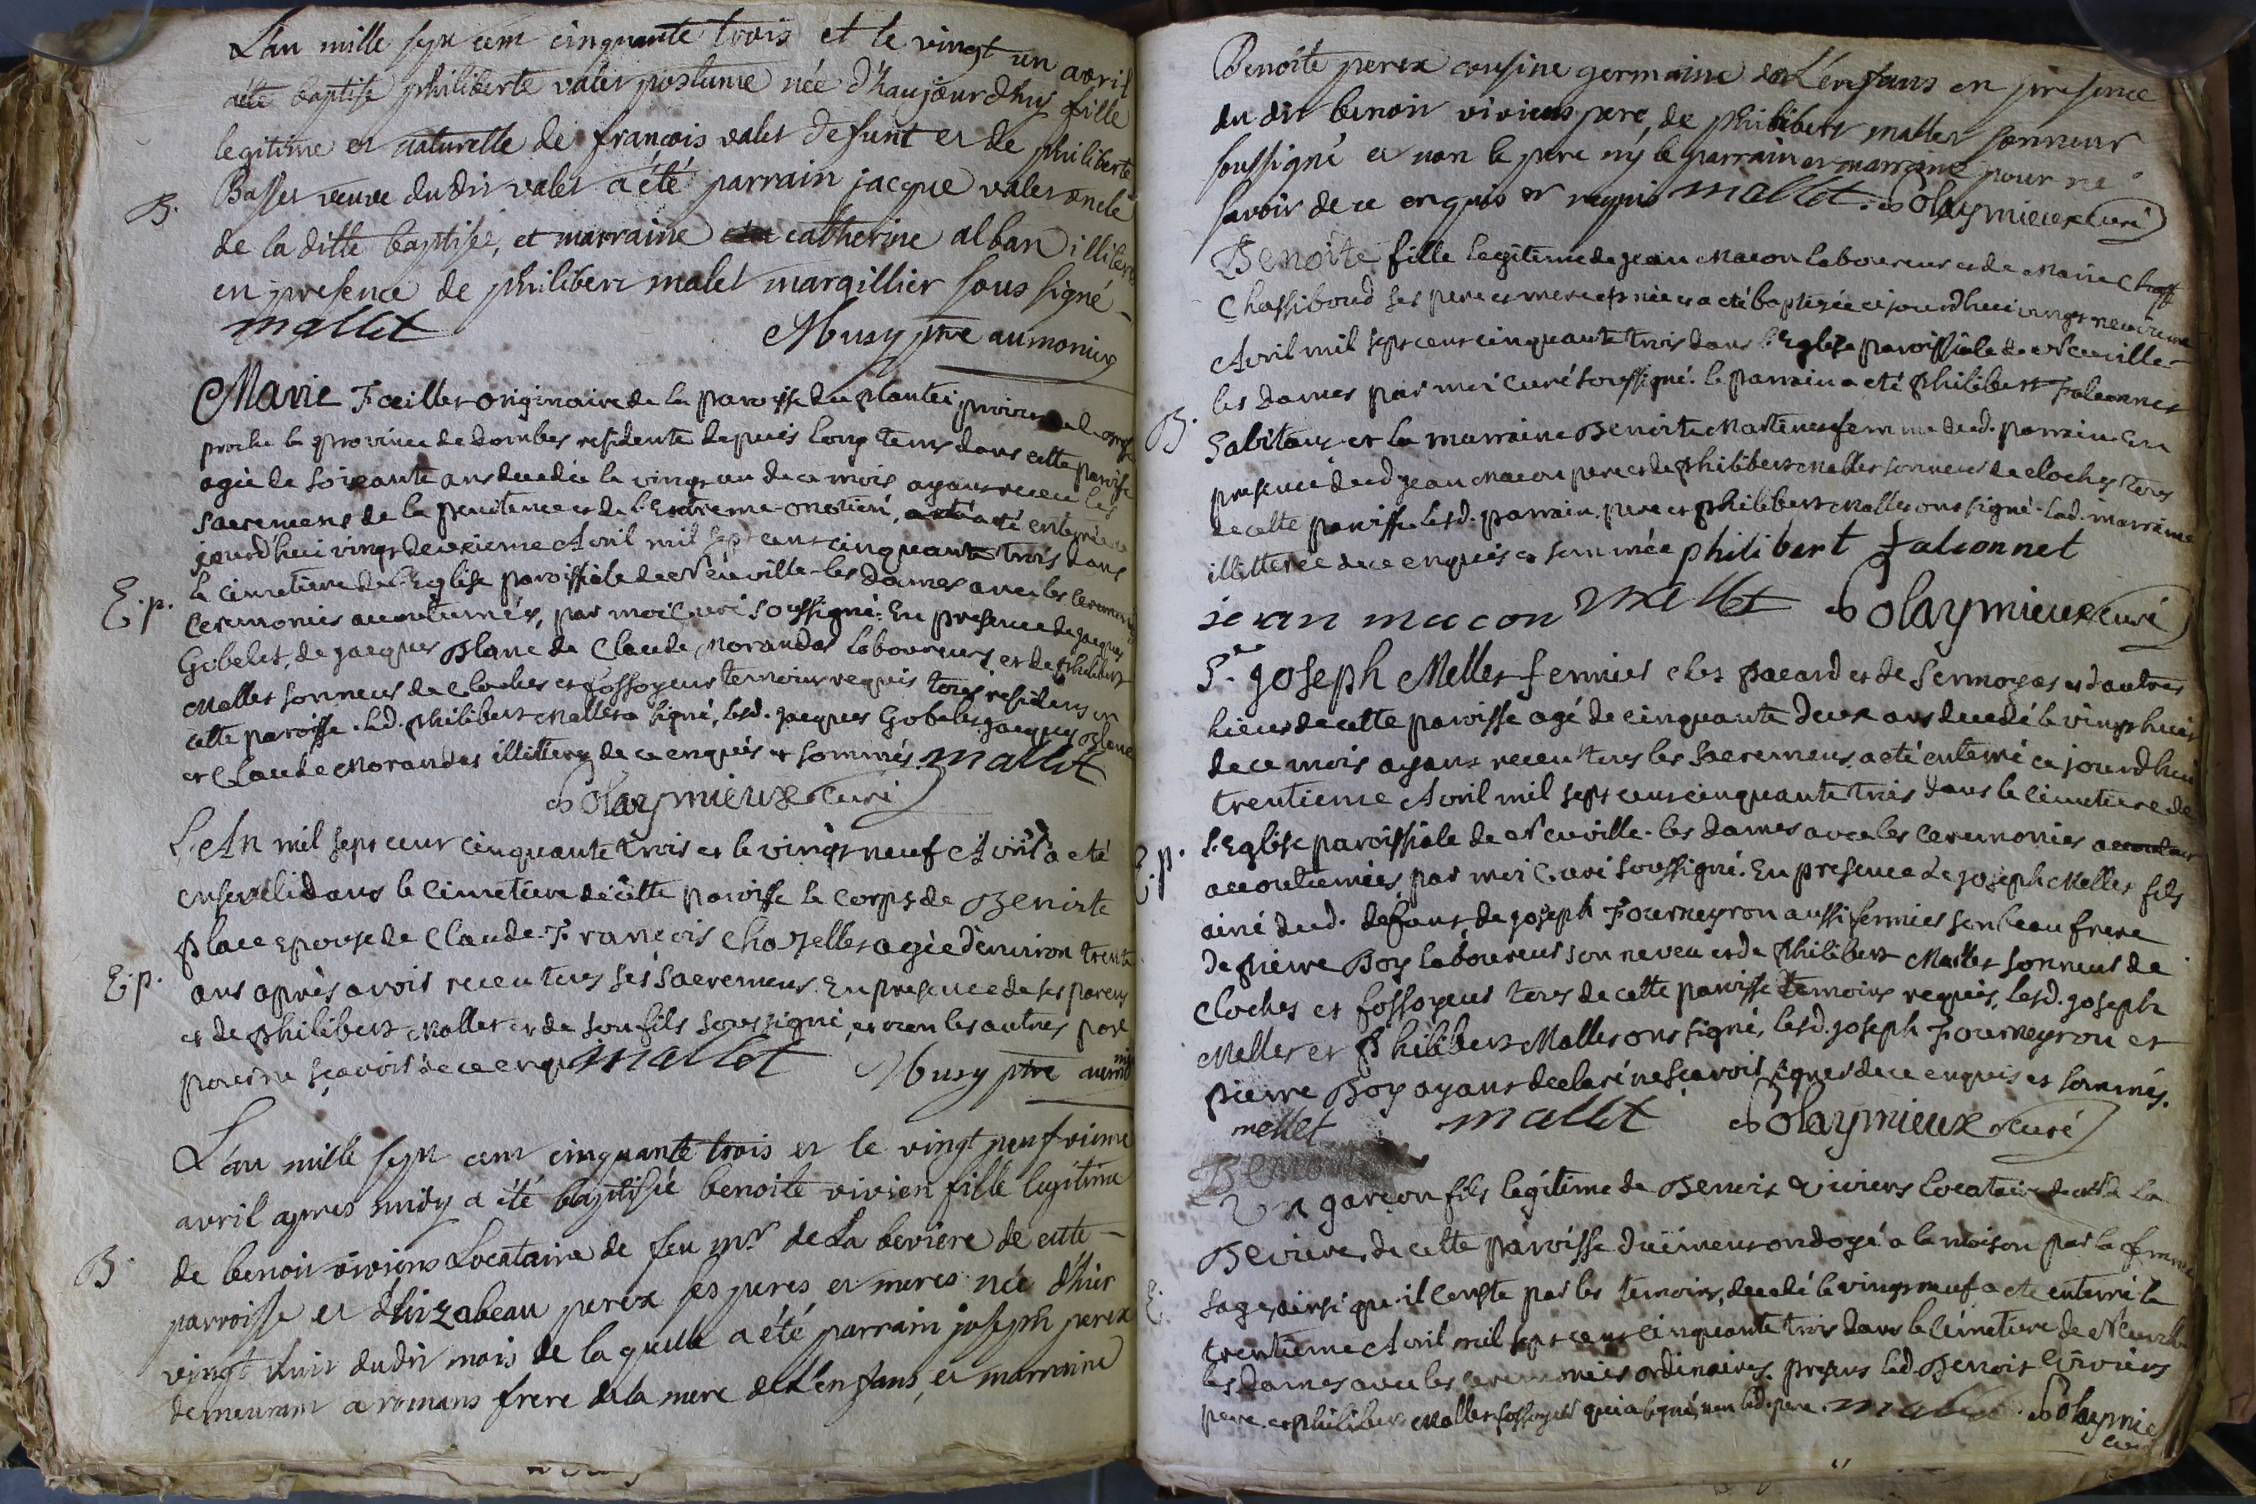 L'an mille sept cent cinquante trois et le vingt un avril
a été baptisé philiberte valet postume née d'haujourdhuy fille
legitime et naturelle de francois valet defunt et de philiberte
B.
Basset veuve dudit valet a été parrain jacque valet oncle
de la ditte baptisée, et marraine catherine alban illiteré
en presence de philibert malet margillier sous signé
mallet Musy ptre aumonier
Marie Foeillet originaire de la paroisse du plantei
proche la province de dombes residente depuis long tems dans cette paroisse
agée de soixante ans decedée le vingt un de ce mois ayant receu les
sacremens de la penitence et de l'Extreme onction, a été enterrée ce
jourd'hui vingt deuxieme Avril mil sept cent cinquante trois dans
E.p.
le cimetiere de l'Eglise paroissiale de Neuville-les dames avec les
ceremonies accoutumées, par moi Curé soussigné. En presence de jacques
Gobelet, de jacques Blanc de Claude Morandas laboureurs, et de philibert
Mallet sonneur de cloches et fossoyeur temoins requis tous residens en
cette paroisse. Led. philibert Mallet a signé, lesd. jacques Gobelet, jacques Blanc
et Claude Morandas illitterez de ce enquis et sommés. mallet
Solaymieux Curé
L'An mil sept cent cinquante trois et le vingt neuf Avril a eté
enseveli dans le cimetiere de cette paroisse le corps de Benoite
place Epouse de Claude-François Chazelles agée d'environ trente
E.p.
ans après avoir receu tous ses sacremens. En presence de ses parens
et de philibert Mallet et de son fils soussigné, et non les autres par
pour ne sçavoir de ce enquis mallet Musy ptre aumo
nier
L'an mille sept cent cinquante trois et le vingt neufvieme
avril apres midy a été baptisée benoite vivien fille legitime
B.
de benoit viviens Locataire de feu mr de La beviere de cette
parroisse et d'hizabeau perex ses peres et meres née d'hier
vingt huit dudit mois de la quelle a été parrain joseph perex
demeurant a romans frere de la mere de L'enfans, et marraine
Benoite perex cousine germaine de L'enfans en presence
du dit benoit viviens pere, de philibert mallet sonneur
soussigné et non le pere ny le parrain et marraine pour ne
savoir de ce enquis et requis mallet. Solaymieux Curé
Benoite fille legitime de jean Macon laboureur et de Marie
Chassiboud ses pere et mere est née et a eté baptizée ce jourd'hui vingt neuvieme
Avril mil sept cent cinquante trois dans l'Eglise paroissiale de Neuville-
les dames par moi Curé soussigné. le parrain a eté philibert Falconnet
B.
habitant et la marraine Benoite Marteneu femme dud. parrain. En
presence dud. jean Macon pere et de philibert Mallet sonneur de cloches tous
de cette paroisse. Lesd. parrain, pere et philibert Mallet ont signé. Lad. marraine
illitterée de ce enquise et sommée philibert falconnet
jean macon mallet Solaymieux Curé
Sr. joseph Mellet fermier chez pacard et de Sermoyas et d'autres
lieux de cette paroisse agé de cinquante deux ans decedé le vingt huit
de ce mois ayant receu tous les sacremens, a eté enterré ce jourd'hui
trentieme Avril mil sept cent cinquante trois dans le cimetiere de
E.p.
l'Eglise paroissiale de Neuville-les dames avec les ceremonies
accoutumées, par moi Curé soussigné. En presence de joseph Mellet fils
ainé dud. defunt, de joseph Fourneyron aussi fermier son beau frere
de pierre Boy laboureur son neveu et de philibert Mallet sonneur de
cloches et fossoyeur tous de cette paroisse temoins requis, lesd. joseph
Mellet et philibert Mallet ont signé, lesd. joseph Fourneyron et
pierre Boy ayant declaré ne sçavoir signer de ce enquis et sommés.
mellet mallet Solaymieux Curé
Un garçon fils legitime de Benoit Viviens locataire de La
Beviere, de cette paroisse duëment ondoyé a la maison par la femme
E.
sage, ainsi qu'il conste par les temoins, decedé le vingt neuf a eté enterré le
trentieme Avril mil sept cent cinquante trois dans le cimetiere de Neuville
les dames avec les ceremonies ordinaires. presens led. Benoit Viviens
pere, et philibert Mallet fossoyeur qui a signé, non led. pere. mallet. Solaymieu
Curé